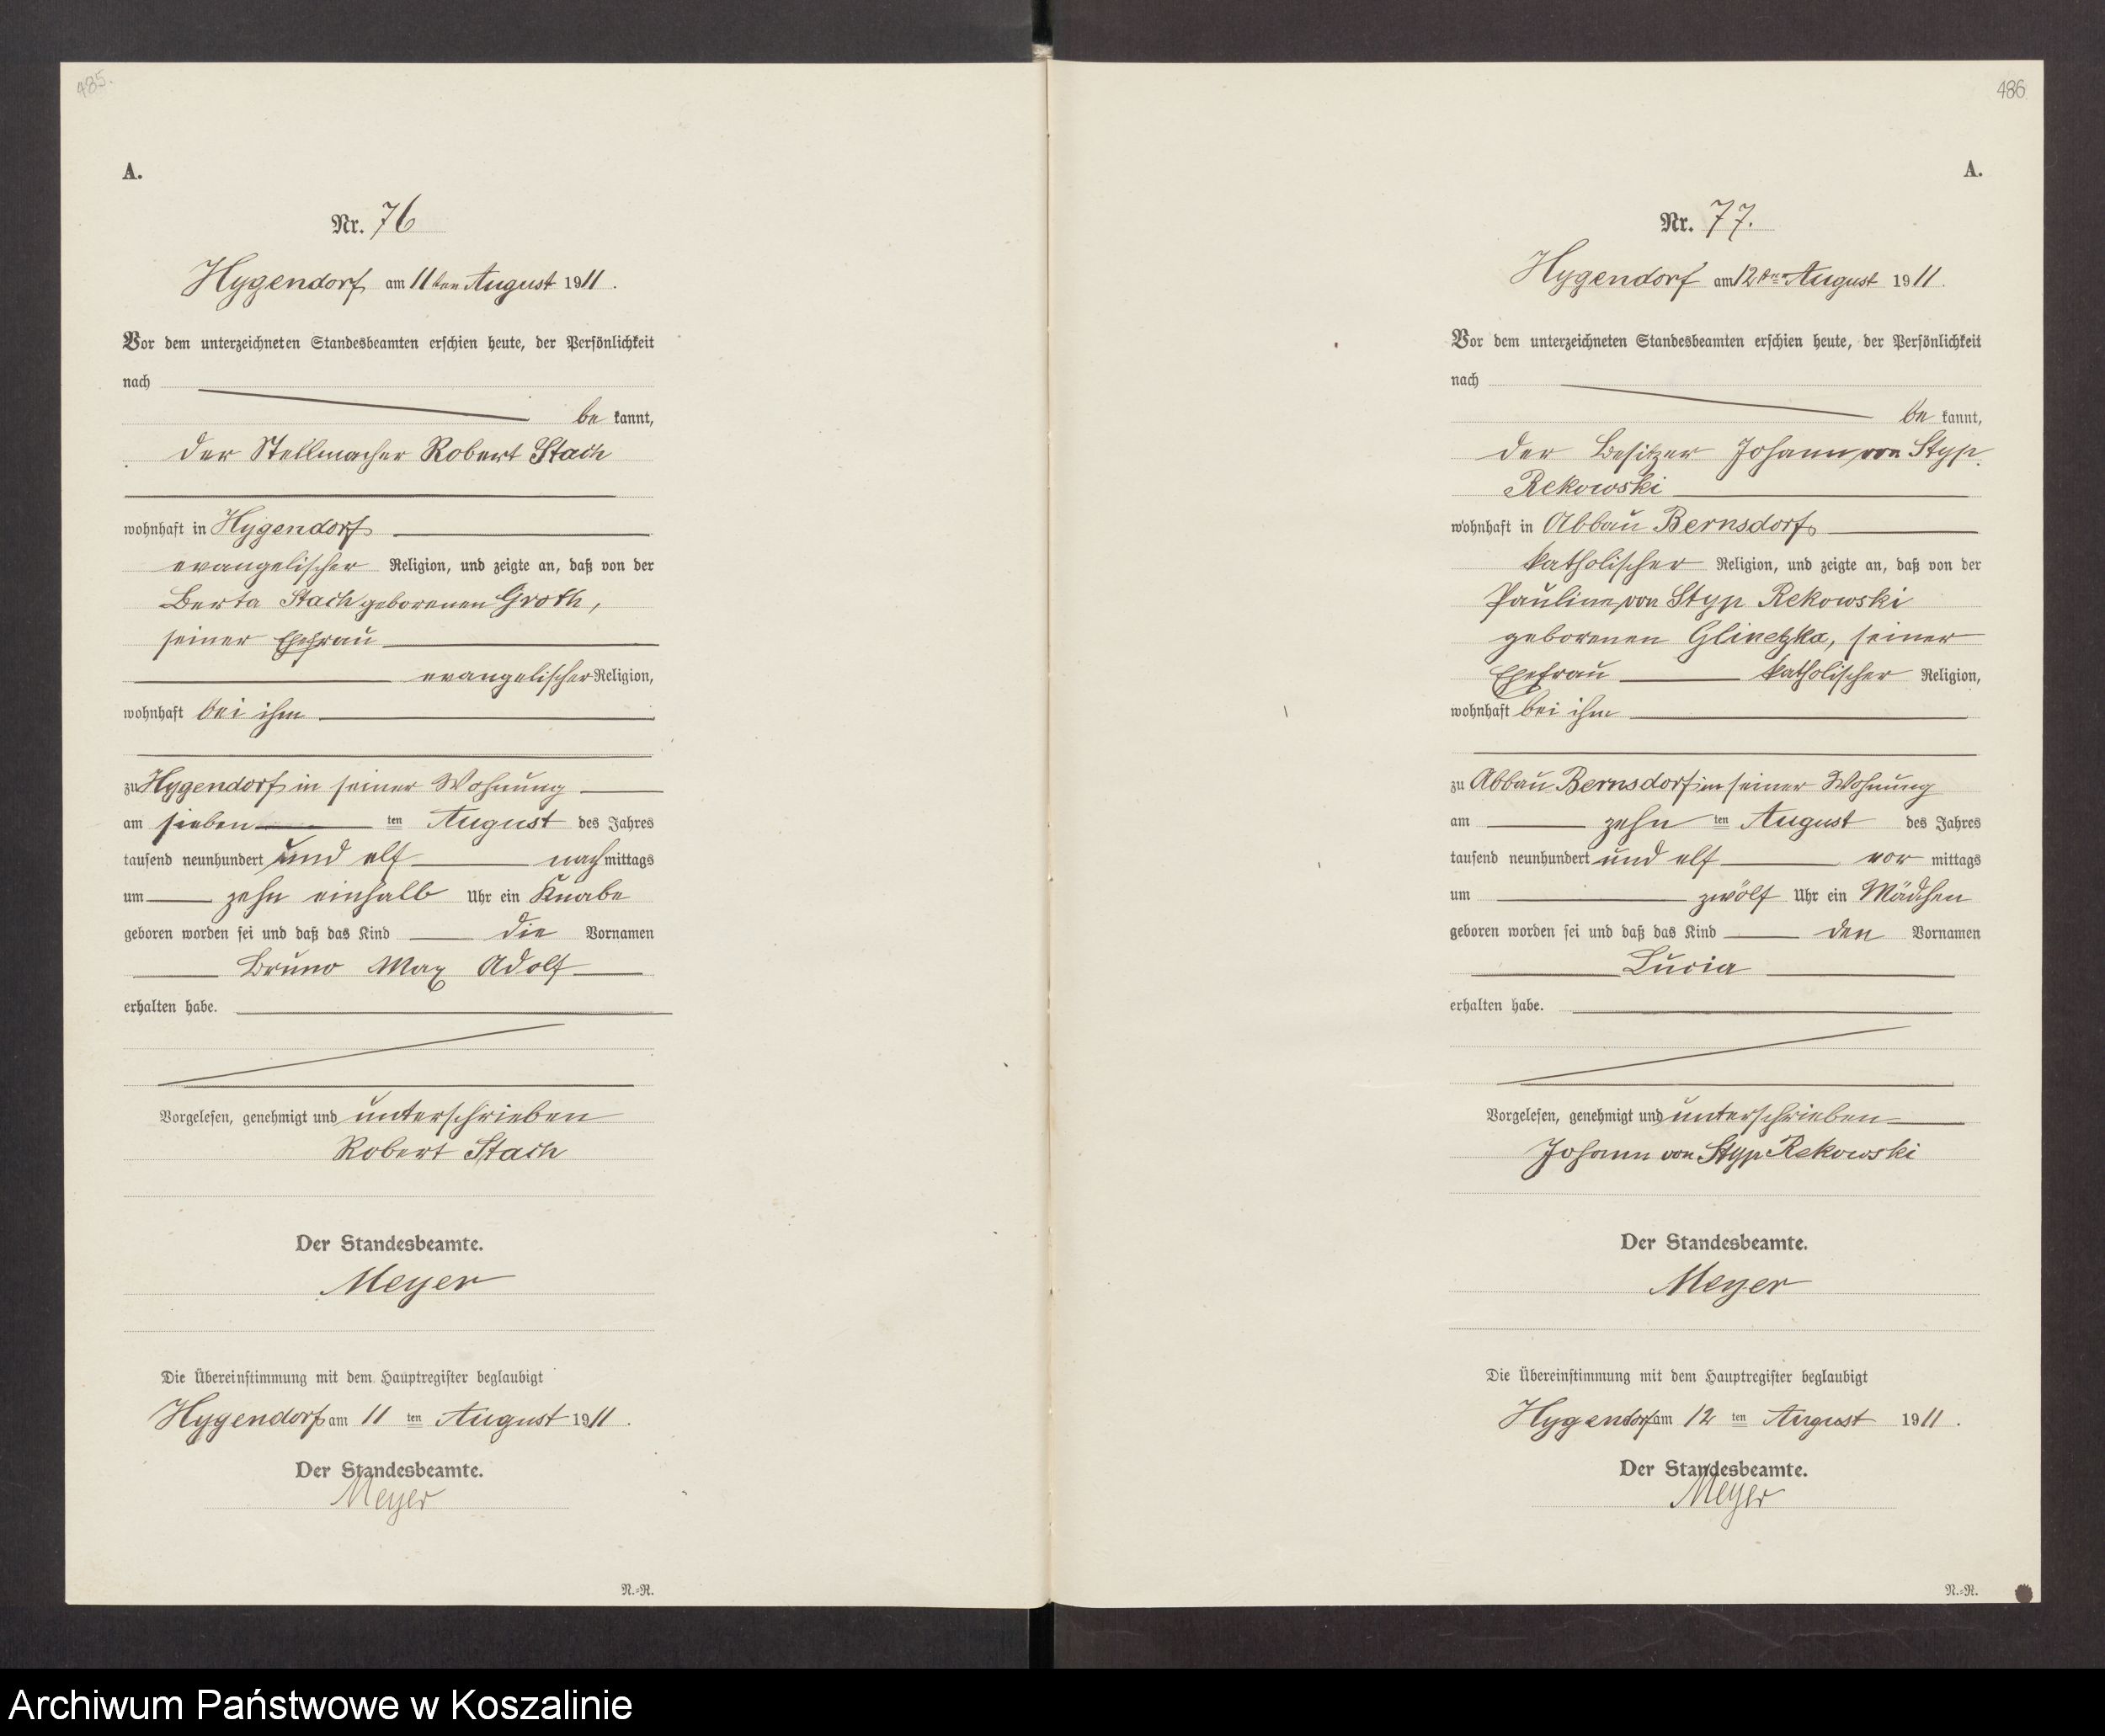 485.
A.
Nr. 76
Hygendorf am 11ten August 1911.
Vor dem unterzeichneten Standesbeamten erschien heute, der Persönlichkeit
nach
be kannt,
der Stellmacher Robert Stach
wohnhaft in Hygendorf
evangelischer Religion, und zeigte an, daß von der
Berta Stach geborenen Groth,
seiner Ehefrau
evangelischer Religion,
wohnhaft bei ihm
zu Hygendorf in seiner Wohnung
am sieben ten August des Jahres
tausend neunhundert und elf nachmittags
um zehn einhalb Uhr ein Knabe
geboren worden sei und daß das Kind die Vornamen
Bruno Max Adolf
erhalten habe.
Vorgelesen, genehmigt und unterschrieben
Robert Stach
Der Standesbeamte.
Meyer
Die Übereinstimmung mit dem Hauptregister beglaubigt
Hygendorf am 11 ten August 1911.
Der Standesbeamte.
Meyer
N.=R.
486
A.
Nr. 77.
Hygendorf am 12ten August 1911.
Vor dem unterzeichneten Standesbeamten erschien heute, der Persönlichkeit
nach
be kannt,
der Besitzer Johann von Styp
Rekowski
wohnhaft in Abbau Bernsdorf
katholischer Religion, und zeigte an, daß von der
Pauline von Styp Rekowski
geborenen Glinetzka, seiner
Ehefrau katholischer Religion,
wohnhaft bei ihm
zu Abbau Bernsdorf in seiner Wohnung
am zehn ten August des Jahres
tausend neunhundert und elf vor mittags
um zwölf Uhr ein Mädchen
geboren worden sei und daß das Kind den Vornamen
Lucia
erhalten habe.
Vorgelesen, genehmigt und unterschrieben
Johann von Styp Rekowski
Der Standesbeamte.
Meyer
Die Übereinstimmung mit dem Hauptregister beglaubigt
Hygendorf am 12 ten August 1911.
Der Standesbeamte.
Meyer
N.=R.
Archiwum Państwowe w Koszalinie